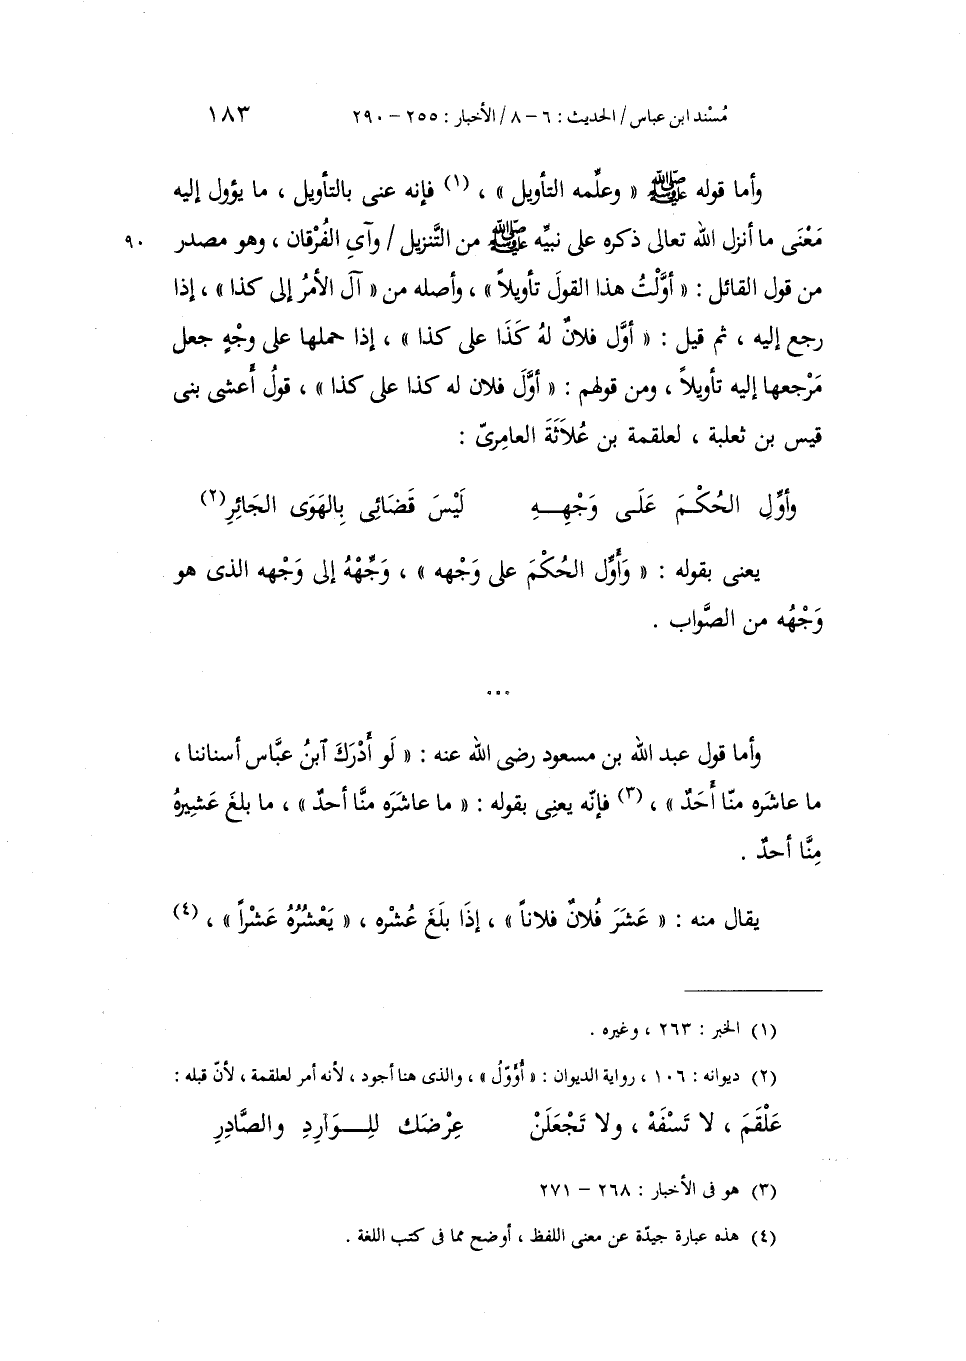 مُسْند ابن عباس / الحديث : ٦ – ٨ / الأخبار : ٢٥٥ – ٢٩٠ ١٨٣
وأما قوله ﷺ « وعلِّمه التأويل » ، (١) فإنه عنى بالتأويل ، ما يؤول إليه
مَعْنَى ما أنزل الله تعالى ذكره على نبيِّه ﷺ من التَّنزيل / وآي الفُرْقان ، وهو مصدر ٩٠
من قول القائل : « أوَّلْتُ هذا القولَ تأويلاً » ، وأصله من « آل الأمرُ إلى كذا » ، إذا
رجع إليه ، ثم قيل : « أوَّل فلانٌ لهُ كَذَا على كذا » ، إذا حملها على وجْهٍ جعل
مَرْجعها إليه تأويلاً ، ومن قولهم : « أوَّلَ فلان له كذا على كذا » ، قولُ أَعشى بنى
قيس بن ثعلبة ، لعلقمة بن عُلاَثَةَ العامِرىّ :
وأوِّلِ الحُكْمَ عَلَى وَجْهِهِ لَيْسَ قَضَائِى بِالهَوَى الجَائِرِ(٢)
يعنى بقوله : « وَأَوِّل الحُكْمَ على وَجْهه » ، وَجِّهْهُ إلى وَجْهه الذى هو
وَجْهُه من الصَّواب .
...
وأما قول عبد الله بن مسعود رضى الله عنه : « لَو أَدْرَكَ آبنُ عبَّاس أسناننا ،
ما عاشَره منّا أَحَدٌ » ، (٣) فإنّه يعنِى بقوله : « ما عاشَرَه منَّا أحدٌ » ، ما بلغَ عَشِيرهُ
مِنَّا أحدٌ .
يقال منه : « عَشَرَ فُلانٌ فلاناً » ، إذَا بلَغَ عُشْره ، « يَعْشُرُهُ عَشْراً » ، (٤)
(١) الخبر : ٢٦٣ ، وغيره .
(٢) ديوانه : ١٠٦ ، رواية الديوان : « أُؤَوّلُ » ، والذى هنا أجود ، لأنه أمر لعلقمة ، لأنّ قبله :
عَلْقَمَ ، لا تَسْفَهْ ، ولا تَجْعَلَنْ عِرْضَك لِلوَارِدِ والصَّادِرِ
(٣) هو فى الأخبار : ٢٦٨ – ٢٧١
(٤) هذه عبارة جيدّة عن معنى اللفظ ، أوضح مما فى كتب اللغة .